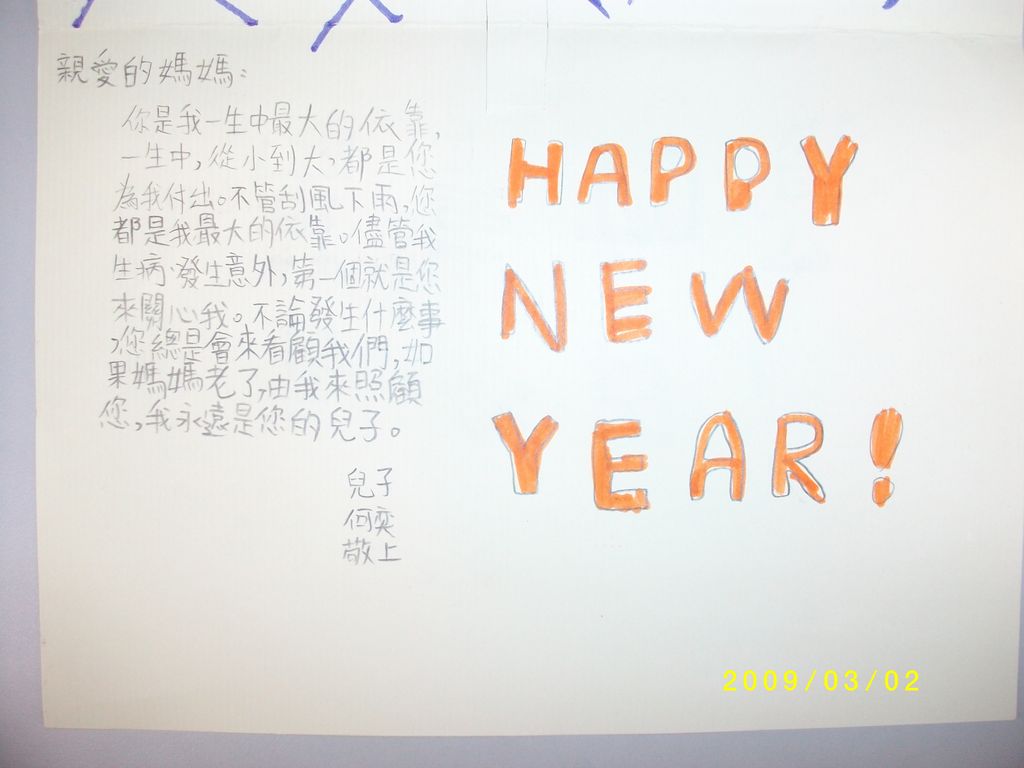 親愛的媽媽:
你是我一生中最大的依靠,
一生中,從小到大,都是您
為我付出。不管刮風下雨,您
都是我最大的依靠。儘管我
生病、發生意外,第一個就是您
來關心我。不論發生什麼事
,您總是會來看顧我們,如
果媽媽老了,由我來照顧
您,我永遠是您的兒子。
兒子
何奕
敬上
HAPPY
NEW
YEAR!
2009/03/02